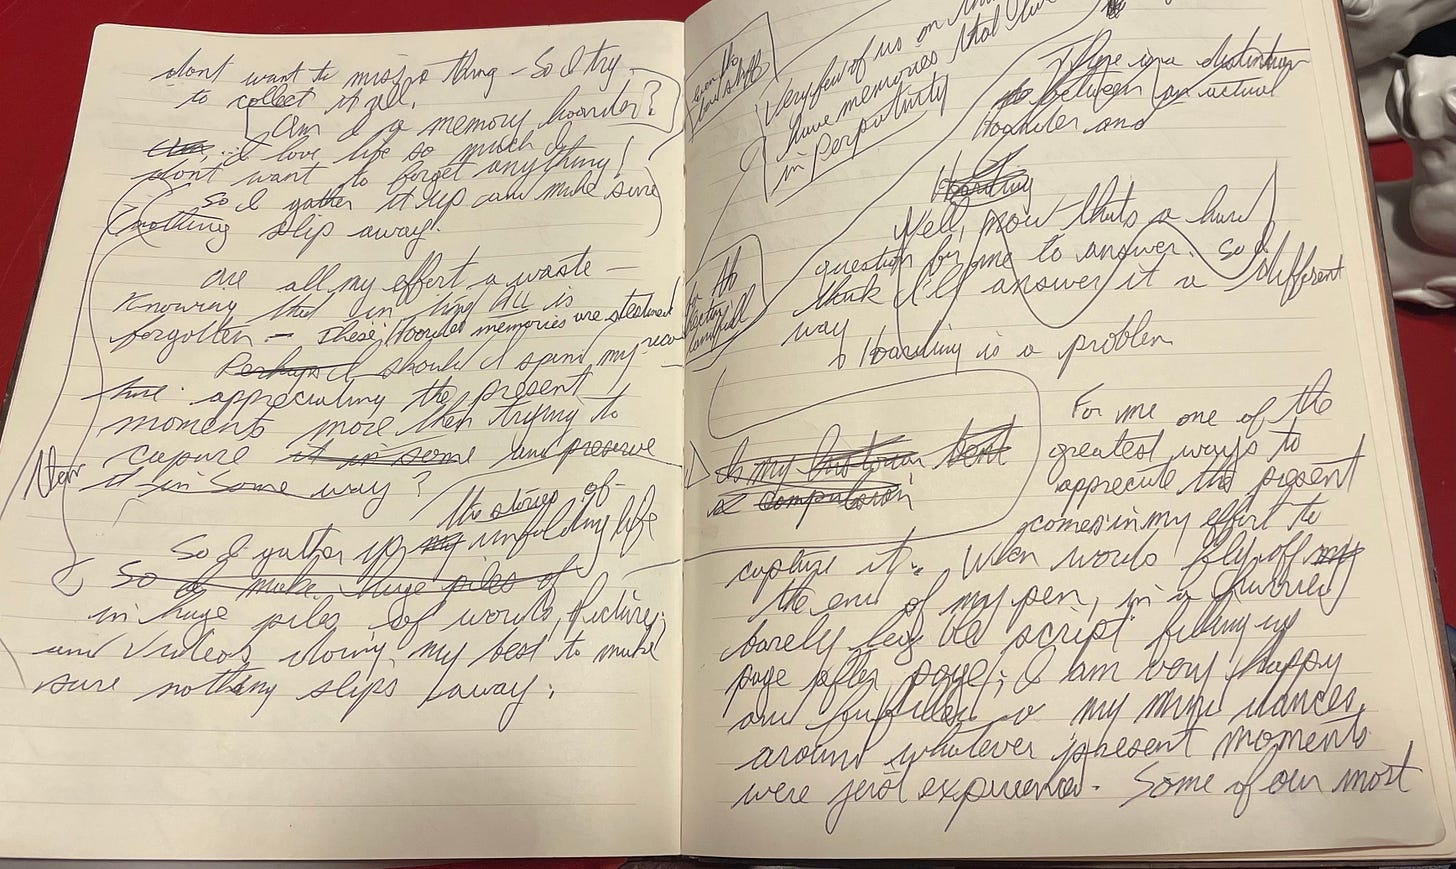 dont want to miss a thing - So I try
to collect it all.
Am I a memory hoarder?
... I love life so much I
dont want to forget anything!
So I gather it up and make sure
nothing slip away.
are all my effort a waste -
Knowing that in time ALL is
forgotten - These hoarded memories are
Perhaps I should I spend my
time appreciating the present
moments more then trying to
capure it in some and preserve
it in some way?
the stories of
So I gather up my unfolding life
So I make huge piles of
in huge piles of words, Pictures
and Videos doing my best to make
sure nothing slips away.
even the
Very few of us on
have memories that live
in Perpetuity
There is a distinction
between an actual
Hoarder and
Hoarding
Well, now thats a hard
question for me to answer. So I
think I'll answer it a different
way
Hoarding is a problem
Is my
a compulsion
For me one of the
greatest ways to
appreciate the present
comes in my effort to
capture it. When words fly off my
the end of my pen, in a hurried
barely legible script filling up
page after page; I am very happy
and fulfilled as my mind dances
around whatever present moments
were just experienced. Some of our most